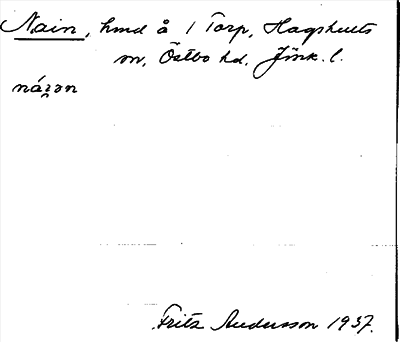 Nain, hmd å 1 Torp, Hagshults
sn, Östbo hd. Jönk. l.
Fritz Andersson 1937.